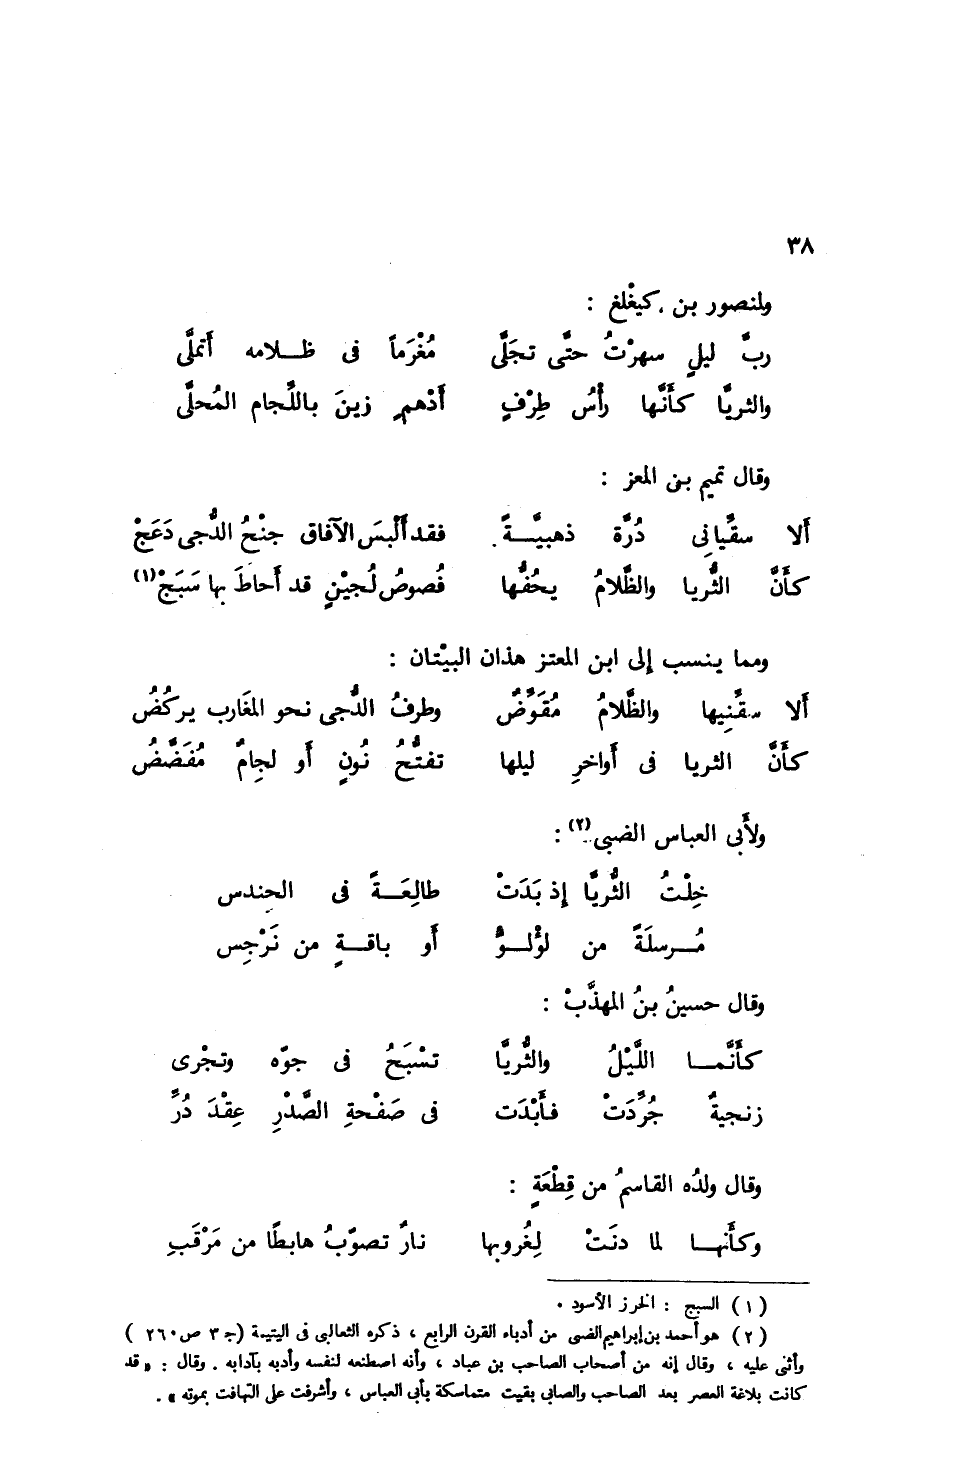 ٣٨
ولمنصور بن كيغْلغ :
ربَّ ليلٍ سهرْتُ حتَّى تجَلَّى مُغْرَماً فى ظــلامه أتملَّى
والثريَّا كأنَّها رأْسُ طِرْفٍ أدْهمٍ زينَ باللِّجام المُحلَّى
وقال تميم بن المعز :
ألا سقِّيانِى دُرَّة ذهبيَّــةً فقد ألْبسَ الآفاق جنْحُ الدُّجى دَعَجْ
كأنَّ الثُّريا والظَّلامُ يحُفُّها فُصوصُ لُجيْنٍ قد أحاطَ بها سَبَجْ(١)
ومما ينسب إلى ابن المعتز هذان البيْتان :
ألا سقِّنِيها والظَّلامُ مُقَوَّضٌ وطرفُ الدُّجى نحو المغَارب يركُضُ
كأنَّ الثريا فى أواخرِ ليلها تفتُّحُ نُونٍ أو لجامٌ مُفَضَّضُ
ولأبى العباس الضبى(٢) :
خِلْتُ الثُّريَّا إذ بَدَتْ طالِعَــةً فى الحِندس
مُــرسلَةً من لؤْلــؤٌ أو باقــةٍ من نَرْجِس
وقال حسينُ بنُ المهذَّبْ :
كأنَّمــا اللَّيْلُ والثُّريَّا تسْبَحُ فى جوّه وتجْرى
زنجيةٌ جُرِّدَتْ فأبْدَت فى صَفْحةِ الصَّدْرِ عِقْدَ دُرِّ
وقال ولدُه القاسمُ من قِطْعَةٍ :
وكأنهــا لما دنَتْ لِغُروبها نارٌ تصوّبُ هابطًا من مَرْقَبِ
(١) السبج : الخرز الأسود .
(٢) هو أحمد بن إبراهيم الضبى من أدباء القرن الرابع ، ذكره الثعالبى فى اليتيمة (ج ٣ ص ٢٦٠ )
وأثنى عليه ، وقال إنه من أصحاب الصاحب بن عباد ، وأنه اصطنعه لنفسه وأدبه بآدابه . وقال : « قد
كانت بلاغة العصر بعد الصاحب والصابى بقيت متماسكة بأبى العباس ، وأشرفت على التهافت بموته » .